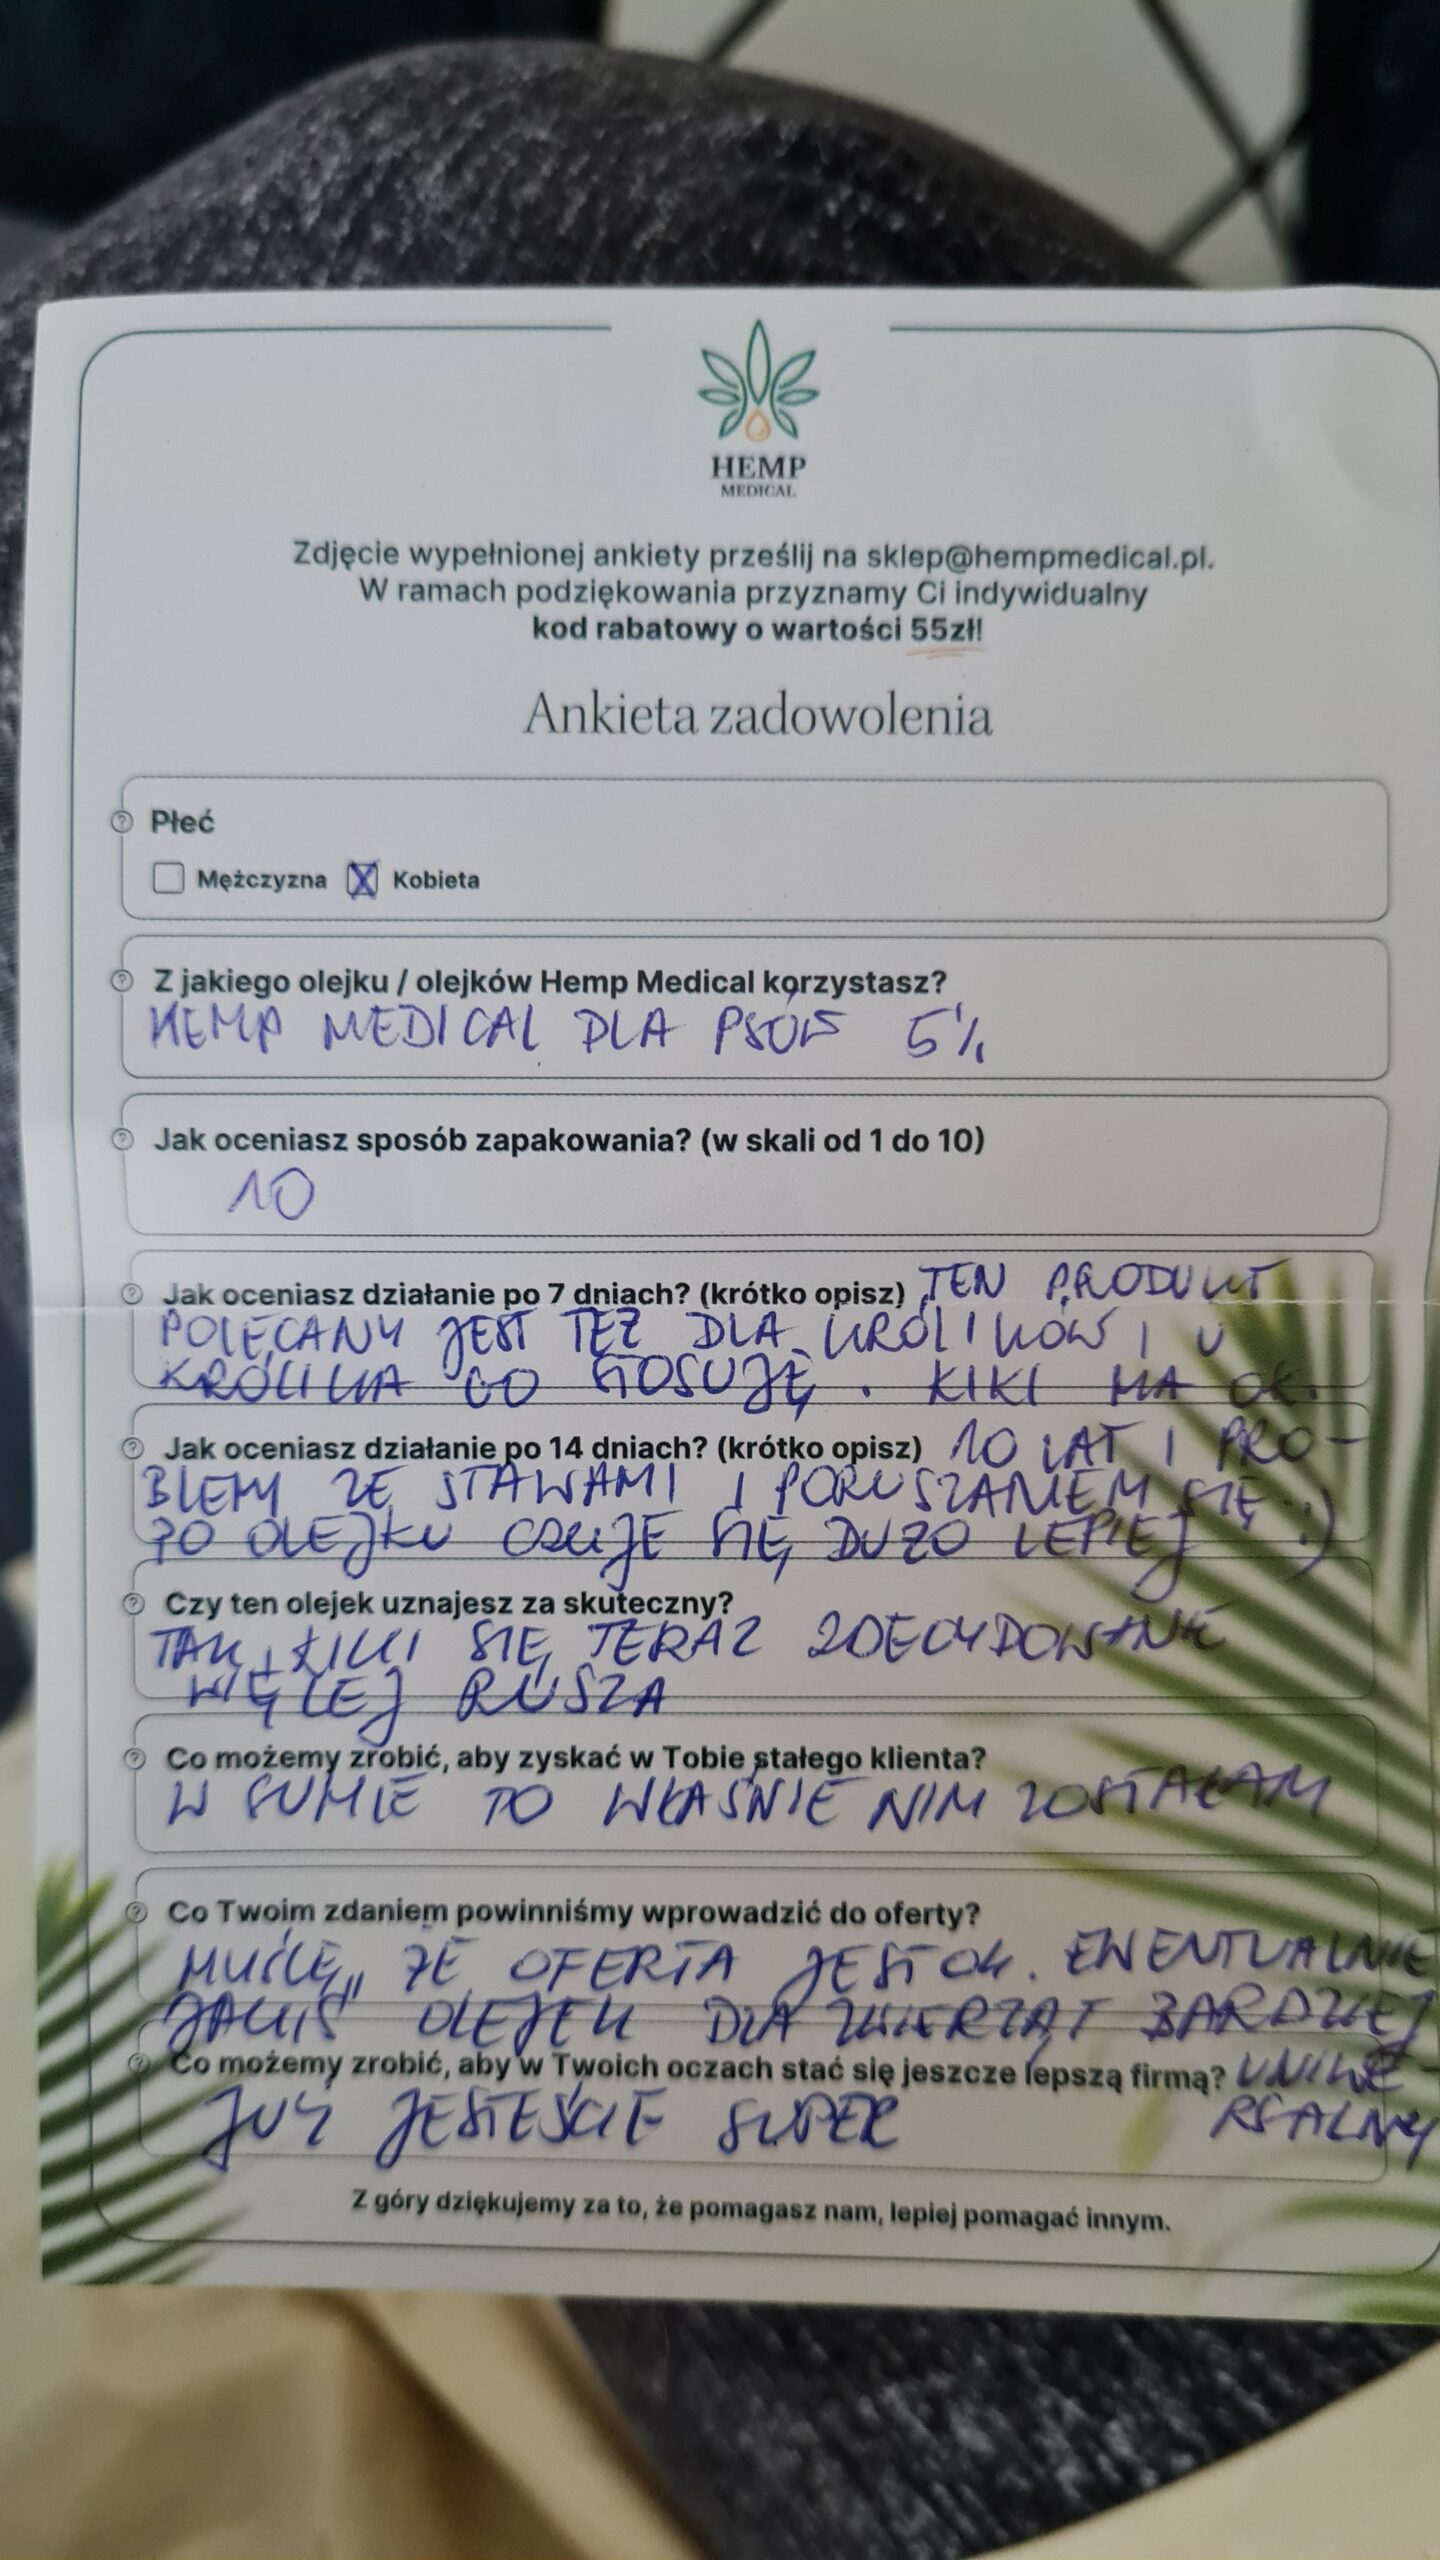 HEMP
MEDICAL
Zdjęcie wypełnionej ankiety prześlij na sklep@hempmedical.pl.
W ramach podziękowania przyznamy Ci indywidualny
kod rabatowy o wartości 55zł!
Ankieta zadowolenia
Płeć
Mężczyzna X Kobieta
Z jakiego olejku / olejków Hemp Medical korzystasz?
HEMP MEDICAL DLA PSÓW 5%
Jak oceniasz sposób zapakowania? (w skali od 1 do 10)
10
Jak oceniasz działanie po 7 dniach? (krótko opisz) TEN PRODUKT
POLECANY JEST TEŻ DLA KRÓLIKÓW I U
KRÓLIKA GO STOSUJĘ. KIKI MA OK.
Jak oceniasz działanie po 14 dniach? (krótko opisz) 10 LAT I PRO-
BLEMY ZE STAWAMI I PORUSZANIEM SIĘ.
PO OLEJKU CZUJE SIĘ DUŻO LEPIEJ :)
Czy ten olejek uznajesz za skuteczny?
TAK, KIKI SIĘ TERAZ ZDECYDOWANIE
WIĘCEJ RUSZA
Co możemy zrobić, aby zyskać w Tobie stałego klienta?
W SUMIE TO WŁAŚNIE NIM ZOSTAŁAM
Co Twoim zdaniem powinniśmy wprowadzić do oferty?
MYŚLĘ, ŻE OFERTA JEST OK. EWENTUALNIE
JAKIŚ OLEJEK DLA ZWIERZĄT BARDZIEJ
Co możemy zrobić, aby w Twoich oczach stać się jeszcze lepszą firmą? UNIWE-
JUŻ JESTEŚCIE SUPER RSALNY
Z góry dziękujemy za to, że pomagasz nam, lepiej pomagać innym.